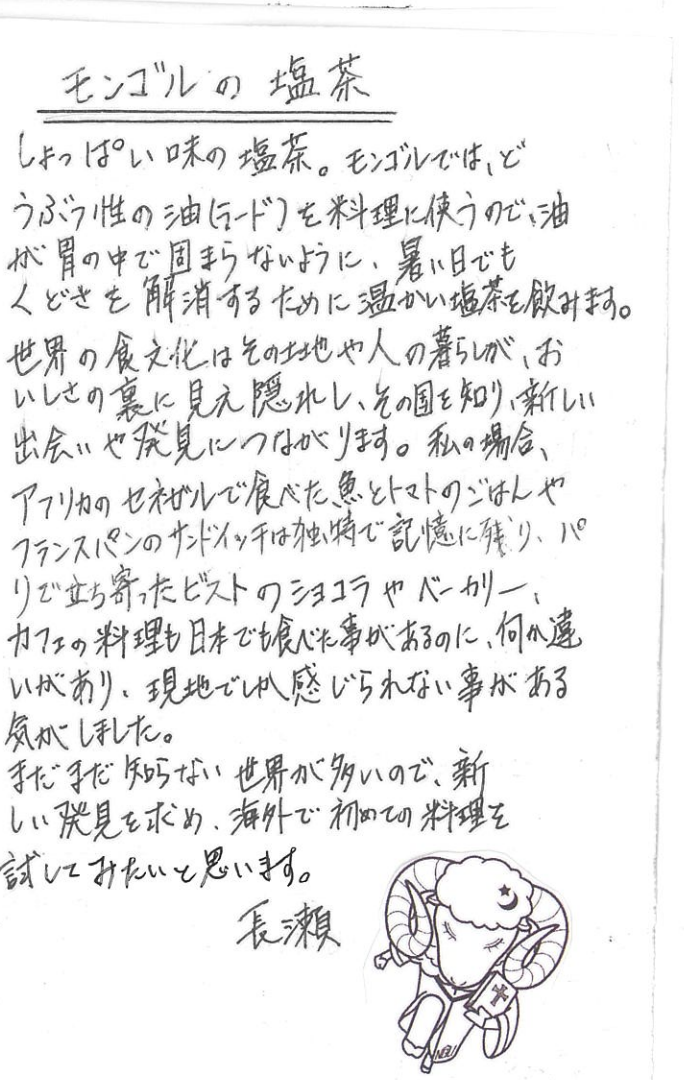 モンゴルの 塩茶
しょっぱい味の塩茶。モンゴルでは、ど
うぶつ性の油(ラード)を料理に使うので、油
が胃の中で固まらないように、暑い日でも
くどさを解消するために温かい塩茶を飲みます。
世界の食文化はその土地や人の暮らしが、お
いしさの裏に見え隠れし、その国を知り、新しい
出会いや発見につながります。私の場合、
アフリカのセネガルで食べた魚とトマトのごはんや
フランスパンのサンドイッチは独特で記憶に残り、パ
リで立ち寄ったビストのショコラやベーカリー、
カフェの料理も日本でも食べた事があるのに、何か違
いがあり、現地でしか感じられない事がある
気がしました。
まだまだ知らない世界が多いので、新
しい発見を求め、海外で初めての料理を
試してみたいと思います。
長瀬